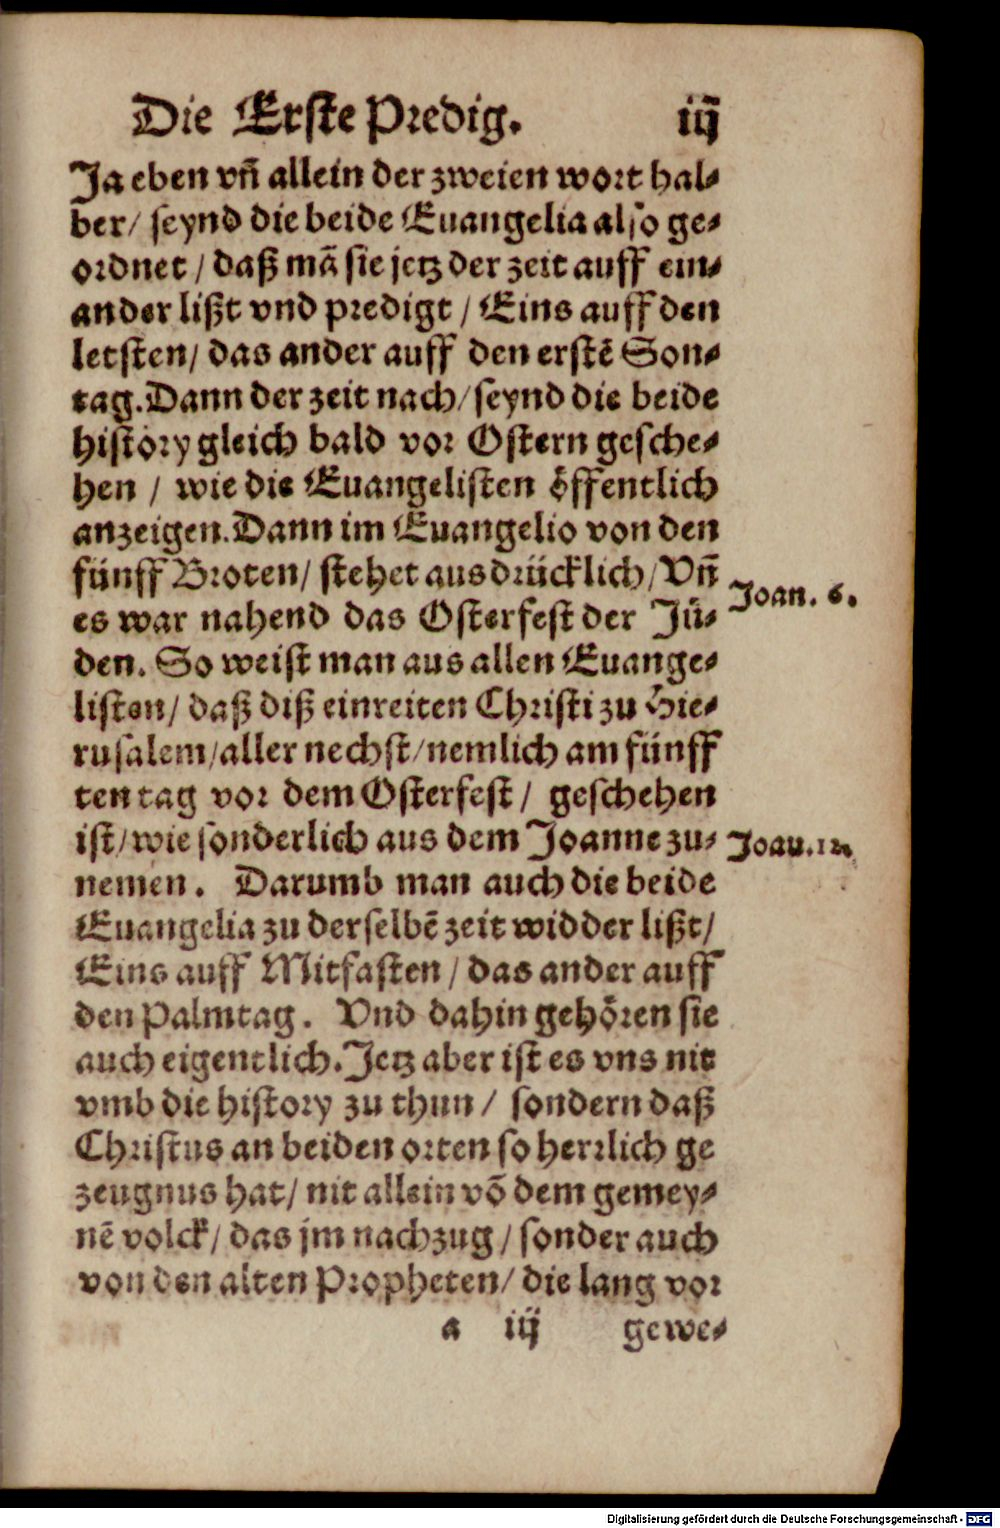 Die Erste Predig. iij
Ja eben vñ allein der zweien wort hal⸗
ber/ seynd die beide Euangelia also ge⸗
ordnet / daß mã sie jetz der zeit auff ein⸗
ander lißt vnd predigt / Eins auff den
letsten/ das ander auff den erstẽ Son⸗
tag. Dann der zeit nach/ seynd die beide
history gleich bald vor Ostern gesche⸗
hen / wie die Euangelisten öffentlich
anzeigen. Dann im Euangelio von den
fünff Broten/ stehet ausdrücklich/ Vñ
es war nahend das Osterfest der Jü⸗
Joan. 6.
den. So weist man aus allen Euange⸗
listen/ daß diß einreiten Christi zu Hie⸗
rusalem/ aller nechst/ nemlich am fünff
ten tag vor dem Osterfest / geschehen
ist/ wie sonderlich aus dem Joanne zu⸗
Joan. 12.
nemen. Darumb man auch die beide
Euangelia zu derselbẽ zeit widder lißt/
Eins auff Mitfasten / das ander auff
den Palmtag. Vnd dahin gehören sie
auch eigentlich. Jetz aber ist es vns nit
vmb die history zu thun / sondern daß
Christus an beiden orten so herrlich ge
zeugnus hat/ nit allein võ dem gemey⸗
nẽ volck/ das jm nachzug / sonder auch
von den alten Propheten/ die lang vor
a iij gewe⸗
Digitalisierung gefördert durch die Deutsche Forschungsgemeinschaft - DFG